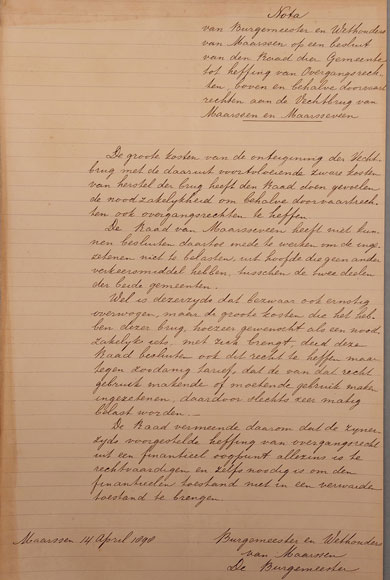 Nota
van Burgemeester en Wethouders
van Maarssen op een besluit
van den Raad dier Gemeente
tot heffing van Overgangsrech-
ten, boven en behalve doorvaart
rechten aan de Vechtbrug van
Maarssen en Maarsseveen
De groote kosten van de onteigening der Vecht-
brug met de daaruit voortvloeiende zware kosten
van herstel der brug heeft den Raad doen gevoelen
de noodzakelijkheid om behalve doorvaartrech-
ten ook overgangsrechten te heffen
De Raad van Maarsseveen heeft niet kun-
nen besluiten daartoe mede te werken om de inge-
zetenen niet te belasten, uit hoofde die geen ander
verkeersmiddel hebben, tusschen de twee deelen
der beide gemeenten.
Wel is dezerzyds dat bezwaar ook ernstig
overwogen, maar de groote kosten die het heb-
ben dezer brug, hoezeer gewenscht als een nood
zakelyk iets, met zich brengt, deed deze
Raad besluiten ook dit recht te heffen maar
tegen zoodanig tarief, dat de van dat recht
gebruik makende of moetende gebruik maken
ingezetenen, daardoor slechts zeer matig
belast worden. –
De Raad vermeende daarom dat de zyner-
zyds voorgestelde heffing van overgangsrecht
uit een financieel oogpunt alleszins is te
rechtvaardigen en zelfs noodig is om den
financieelen toestand niet in een verwarden
toestand te brengen.
Maarssen 14 April 1898
Burgemeester en Wethouders
van Maarssen
De Burgemeester